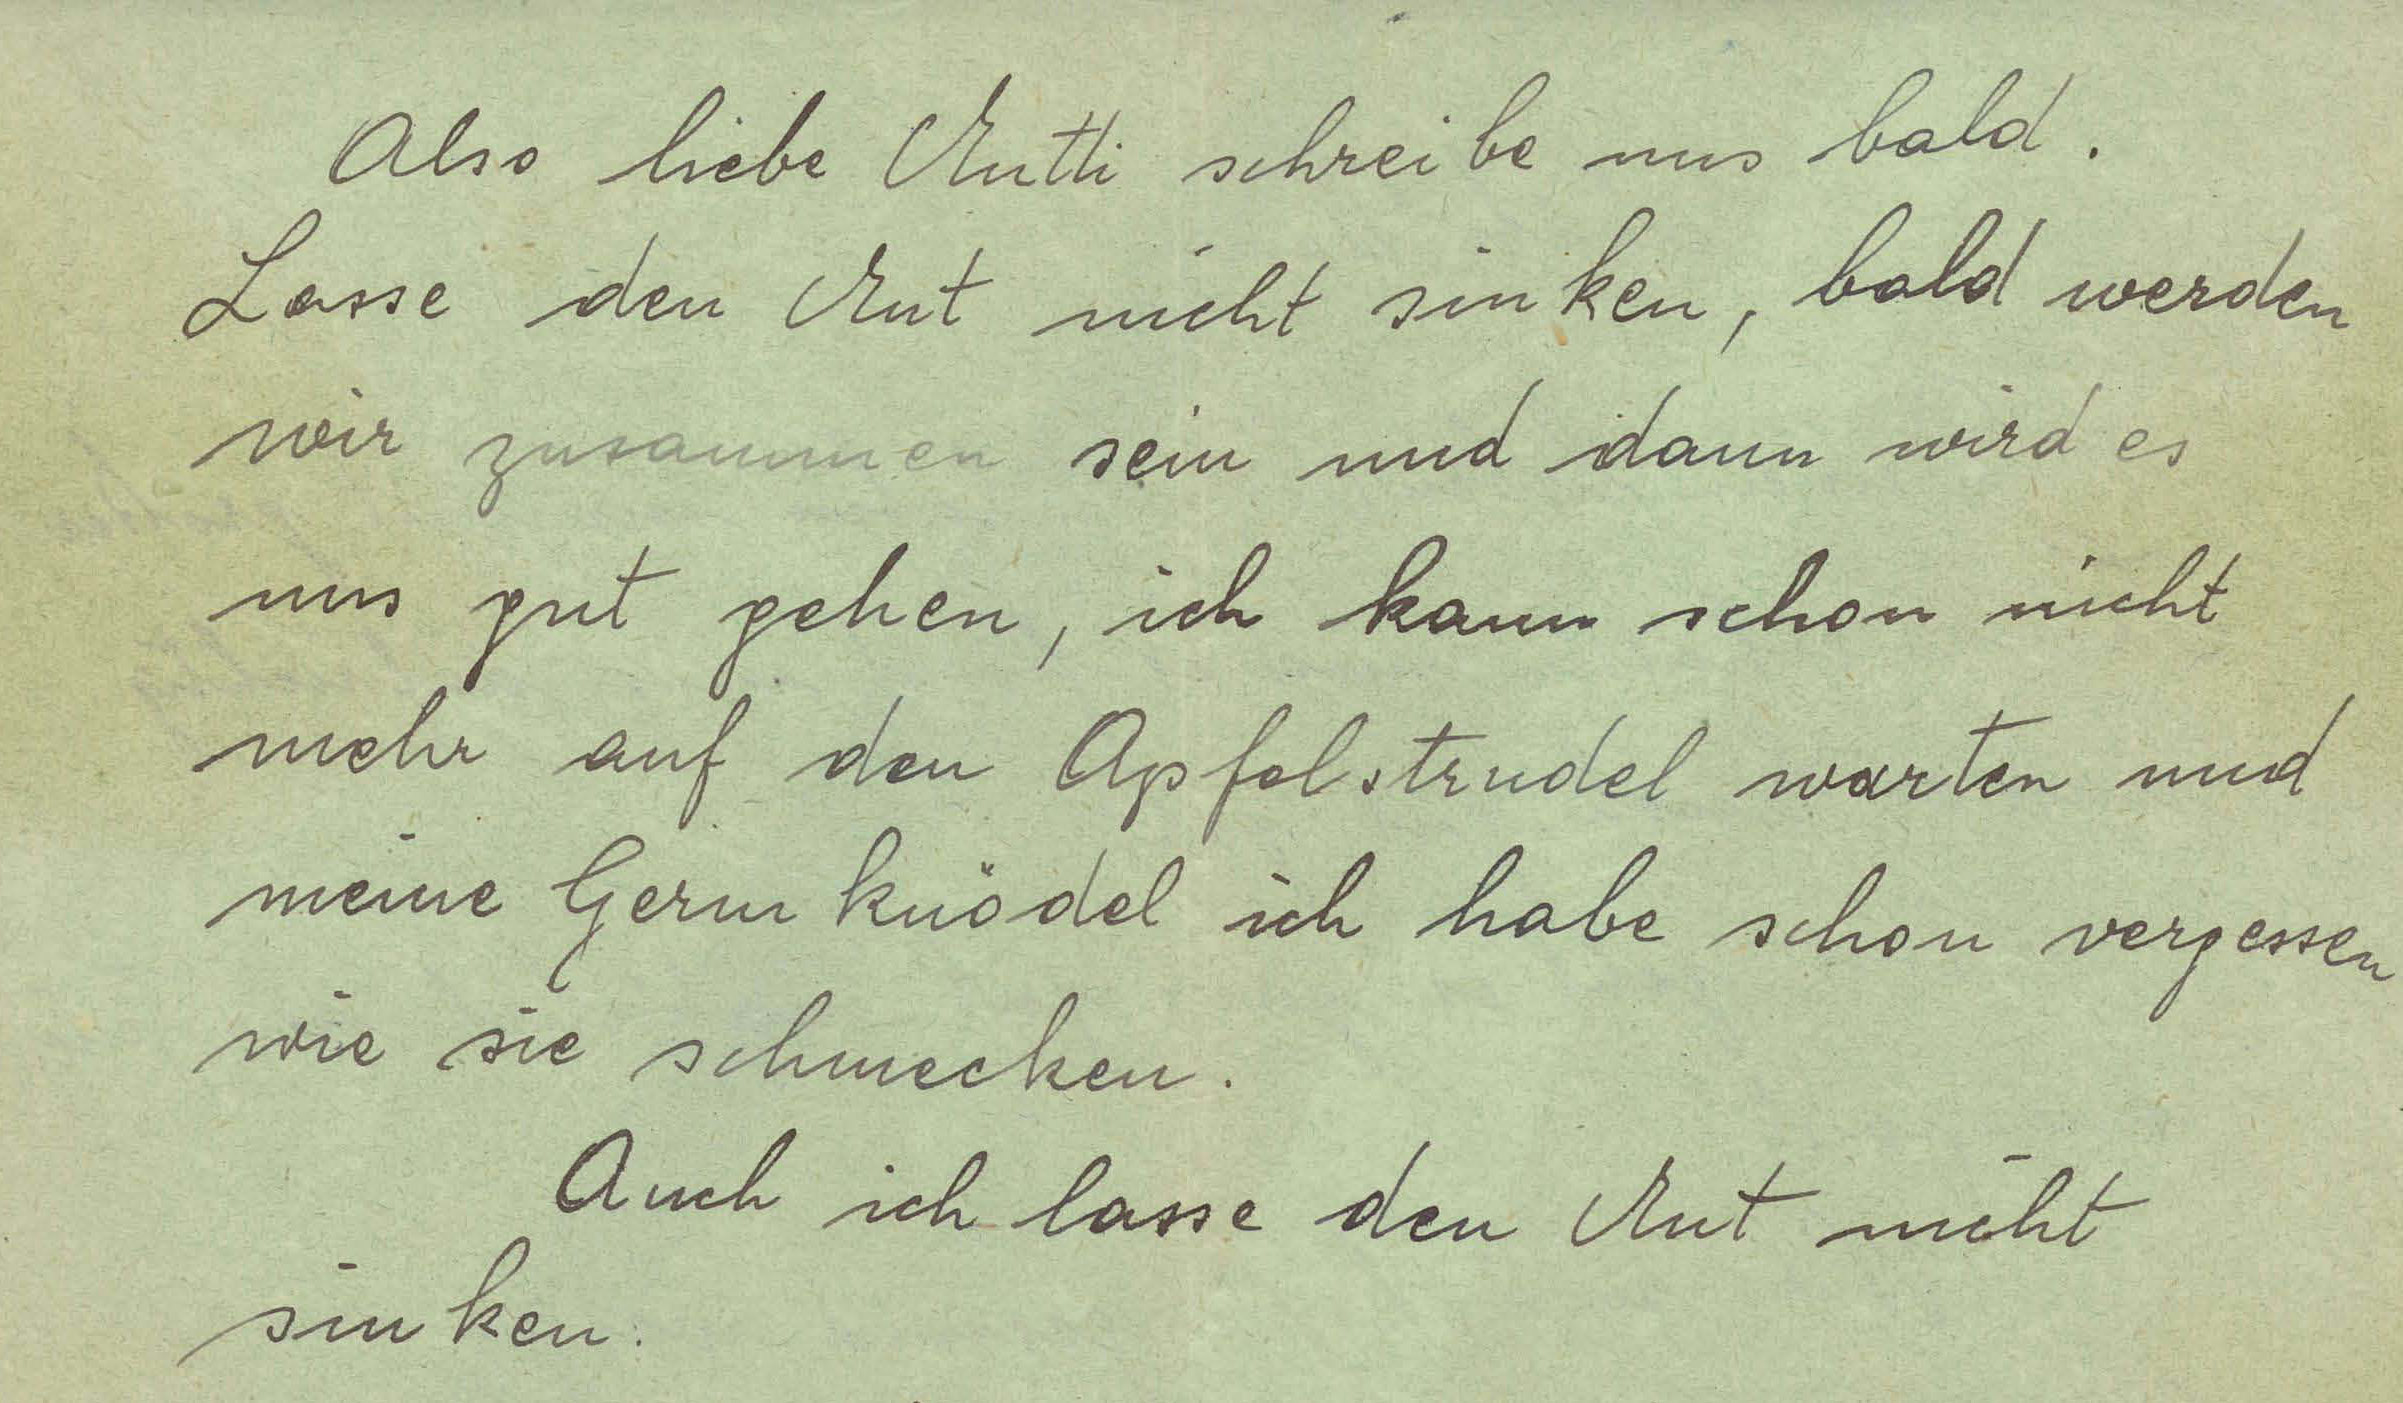 Also liebe Mutti schreibe uns bald.
Lasse den Mut nicht sinken, bald werden
wir zusammen sein und dann wird es
uns gut gehen, ich kann schon nicht
mehr auf den Apfelstrudel warten und
meine Germknödel ich habe schon vergessen
wie sie schmecken.
Auch ich lasse den Mut nicht
sinken.